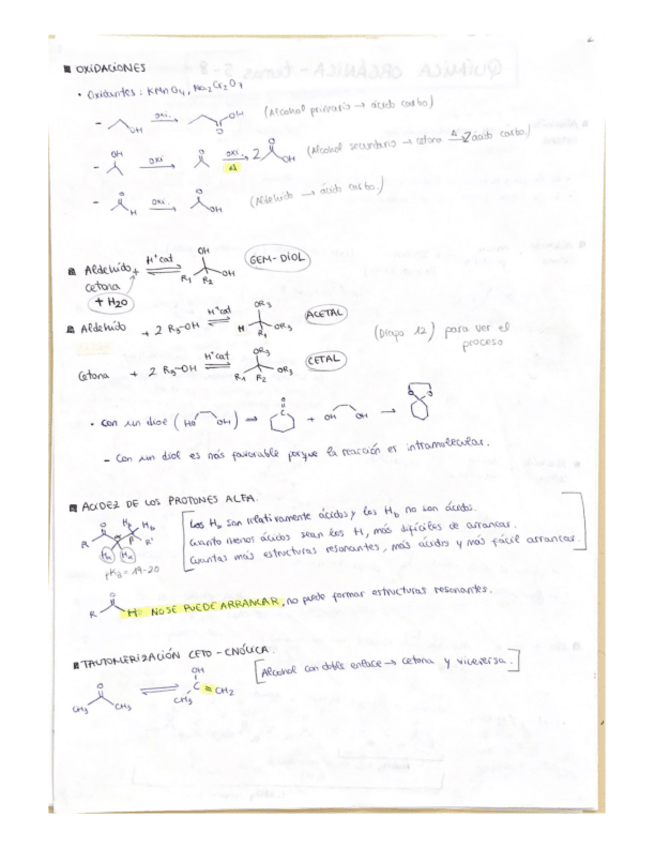 ■ OXIDACIONES
• Oxidantes: KMnO4, Na2Cr2O7
- OH oxi. OH (Alcohol primario → ácido carbo)
- OH oxi O oxi. Δ 2 O OH (Alcohol secundario → cetona Δ→ 2 ácido carbo.)
- O H oxi. O OH (Aldehido → ácido carbo.)
■ Aldehido + H+cat OH OH R1 R2 GEM-DIOL
cetona
+ H2O
■ Aldehido + 2 R3-OH H+cat OR3 H OR3 R1 ACETAL
(Diapo 12) para ver el proceso
Cetona + 2 R3-OH H+cat OR3 R1 R2 OR3 CETAL
• Con un diol (HO OH) → O C + OH OH → O O
- Con un diol es más favorable porque la reacción es intramolecular.
■ ACIDEZ DE LOS PROTONES ALFA.
Los Ha son relativamente ácidos y los Hb no son ácidos.
Cuanto menos ácidos sean los H, más difíciles de arrancar.
Cuantas más estructuras resonantes, más ácidos y más fácil arrancar.
O Hb Hb R α β R' Ha Ha
pKa = 19-20
O R H = NO SE PUEDE ARRANCAR, no puede formar estructuras resonantes.
■ TAUTOMERIZACIÓN CETO-ENÓLICA.
[Alcohol con doble enlace → cetona y viceversa.]
O CH3 CH3 OH C = CH2 CH3